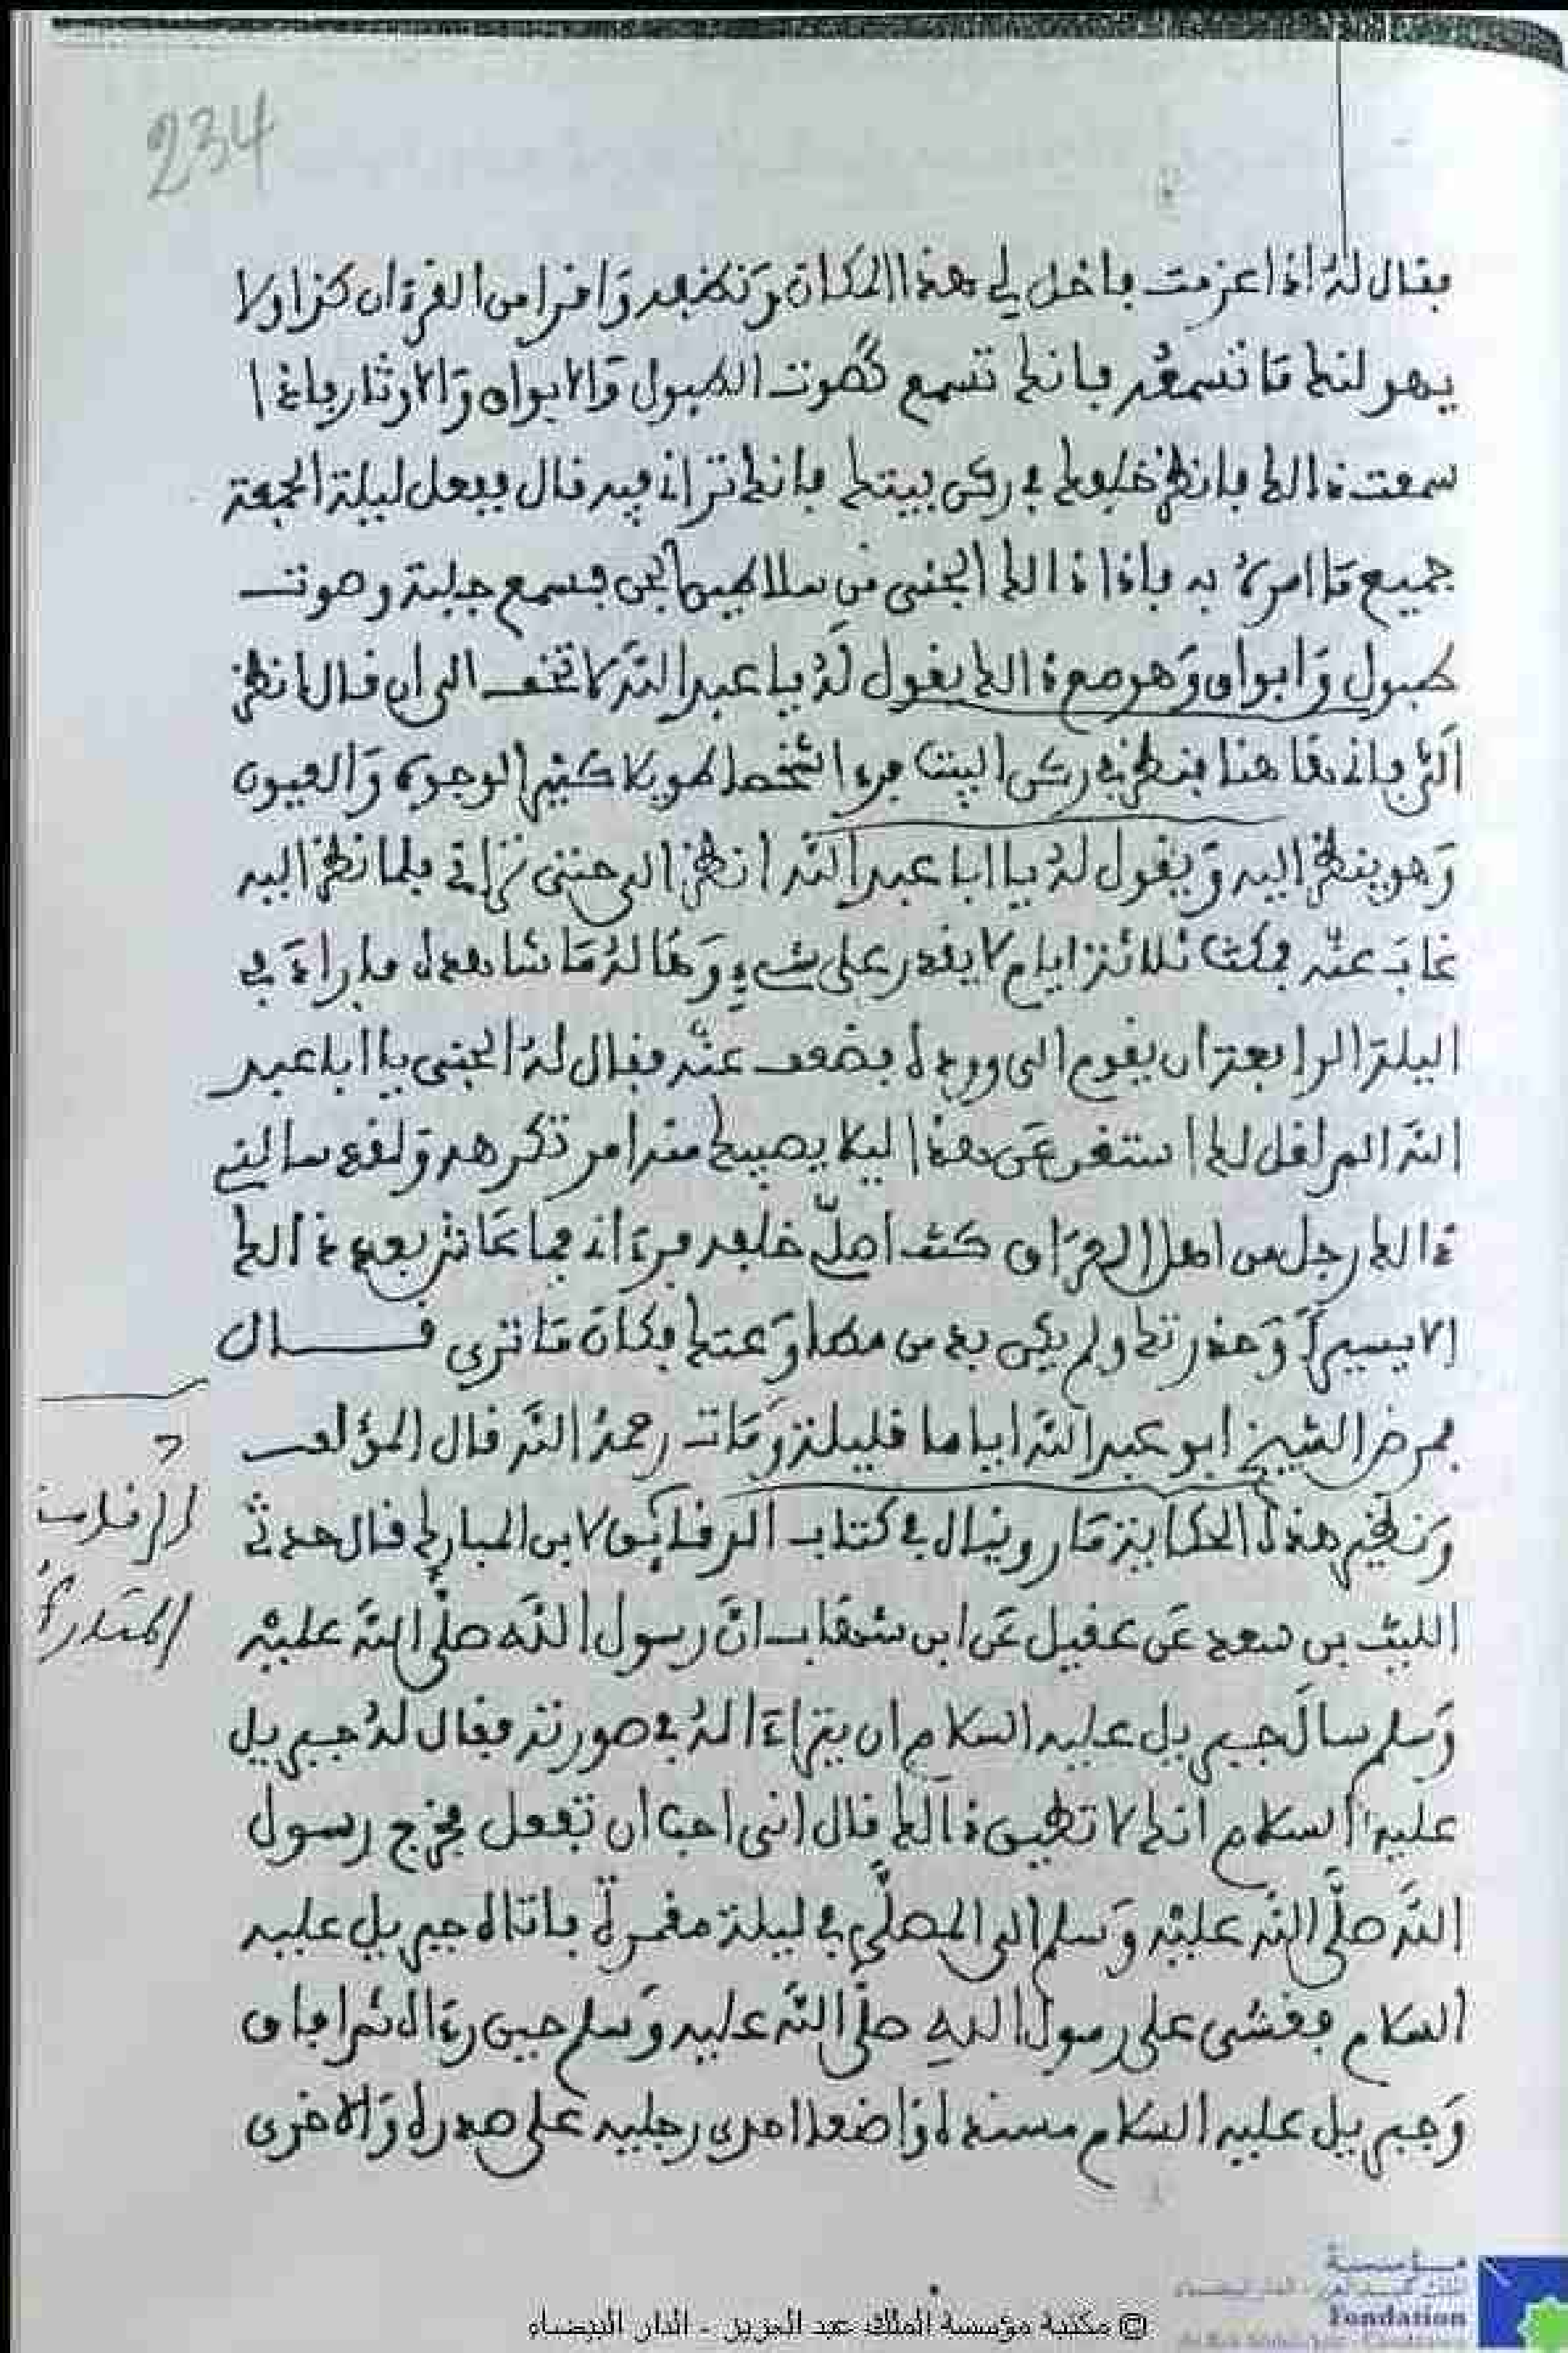 234
فقال له اذا عزمت فاخل لي هذا المكان ونظفه وافرا من القرءان كذا ولا
يهولنك ما تسمعه فانك تسمع كصوت الطبول والابواق والاوتار فاذا
سمعت ذالك فانظر خلفك في ركن بيتك فانك تراني فيه قال ففعل ليلة الجمعة
جميع ما امره به فاذا ذالك الجني من سلاطين الجن فسمع جلبة وصوت
طبول وابواق وهو مع ذالك يقول له يا عبد الله لا تخف الى ان قال انظر
الي فاني هاهنا فنظر في ركن البيت فرءا شخصا طويلا كثير الوجوه والعيون
وهو ينظر اليه ويقول له يا ابا عبد الله انظر الي حتى تراني فلما نظر اليه
غاب عنه فمكث ثلاثة ايام لا يقدر على شيء وهاله ما شاهده فاراد في
اليلة الرابعة ان يقوم الى ورده فضعف عنه فقال له الجني يا ابا عبد
الله الم اقل لك استغن عن هذا ليلا يصيبك منه امر تكرهه ولقد سالني
ذالك رجل من اهل العراق كنت اصلي خلفه فرءاني فما عاش بعد ذالك
الا يسيرا وحذرتك ولم يكن بد من مطاوعتك فكان ما ترى قال
فمرض الشيخ ابو عبد الله اياما قليلة ومات رحمه الله قال المؤلف
ونظير هذه الحكاية ما رويناه في كتاب الرقايق لابن المبارك قال حدثني
الليث بن سعد عن عقيل عن ابن شهاب ان رسول الله صلى الله عليه
وسلم سال جبريل عليه السلام ان يتراءا له في صورته فقال له جبريل
عليه السلام انك لا تطيق ذالك قال اني احب ان تفعل فخرج رسول
الله صلى الله عليه وسلم الى المصلى في ليلة مقمرة فاتاه جبريل عليه
السلام فغشي على رسول الله صلى الله عليه وسلم حين رءاه ثم افاق
وجبريل عليه السلام مسنده واضعا احدى رجليه على صدره والاخرى
مؤسسة
Fondation
© مكتبة مؤسسة الملك عبد العزيز - الدار البيضاء